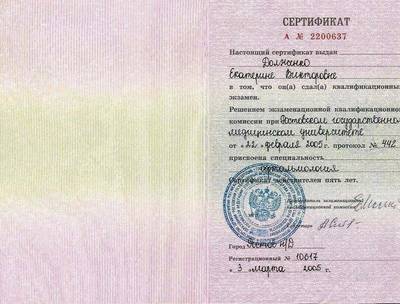 СЕРТИФИКАТ
А № 2200637
Настоящий сертификат выдан
Екатерине Викторовне
в том, что он(а) сдал(а) квалификационный
экзамен.
Решением экзаменационной квалификационной
комиссии при Ростовском государственном
медицинском университете
от «22» февраля 2005 г. протокол № 442
присвоена специальность
офтальмология
Сертификат действителен пять лет.
Председатель экзаменационной
квалификационной комиссии
Секретарь
Город Ростов н/Д
Регистрационный № 10617
« 3 » марта 2005 г.